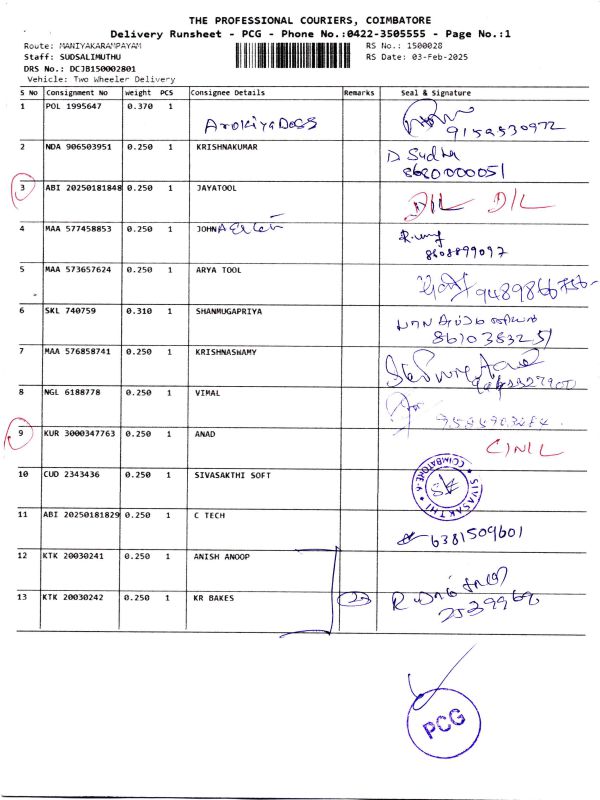 THE PROFESSIONAL COURIERS, COIMBATORE
Delivery Runsheet - PCG - Phone No.:0422-3505555 - Page No.:1
Route: MANIYAKARAMPAYAM RS No.: 1500028
Staff: SUDSALIMUTHU RS Date: 03-Feb-2025
DRS No.: DCJB150002801
Vehicle: Two Wheeler Delivery
S No Consignment No Weight PCS Consignee Details Remarks Seal & Signature
1 POL 1995647 0.370 1
ArokiyaDoss 9159530972
2 NDA 906503951 0.250 1 KRISHNAKUMAR D Sudha
8680000051
3 ABI 20250181848 0.250 1 JAYATOOL D/L D/L
4 MAA 577458853 0.250 1 JOHNA
8608899097
5 MAA 573657624 0.250 1 ARYA TOOL
6 SKL 740759 0.310 1 SHANMUGAPRIYA
8610383251
7 MAA 576858741 0.250 1 KRISHNASWAMY
8 NGL 6188778 0.250 1 VIMAL
9 KUR 3000347763 0.250 1 ANAD C/N/L
10 CUD 2343436 0.250 1 SIVASAKTHI SOFT SIVASAKTHI COIMBATORE-6
11 ABI 20250181829 0.250 1 C TECH 6381509601
12 KTK 20030241 0.250 1 ANISH ANOOP
13 KTK 20030242 0.250 1 KR BAKES R
PCG